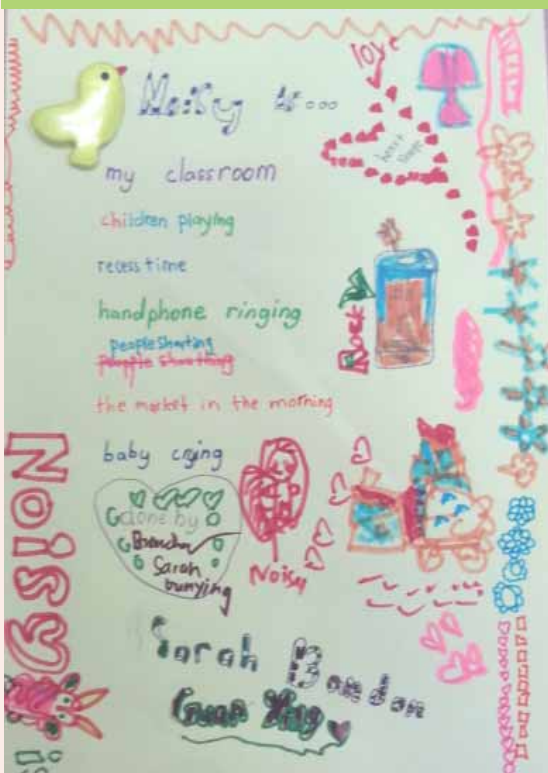 Noisy is...
love
heart
my classroom
children playing
recess time
handphone ringing
Rock
people shouting
people shouting
the market in the morning
baby crying
Noisy
done by
Brandon
Sarah
bunying
Noisy
Sarah Brandon